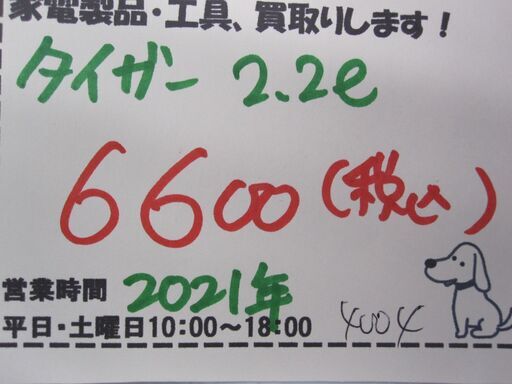 家電製品・工具、買取りします！
タイガー 2.2ℓ
6600(税込)
営業時間 2021年
平日・土曜日10:00～18:00 4004